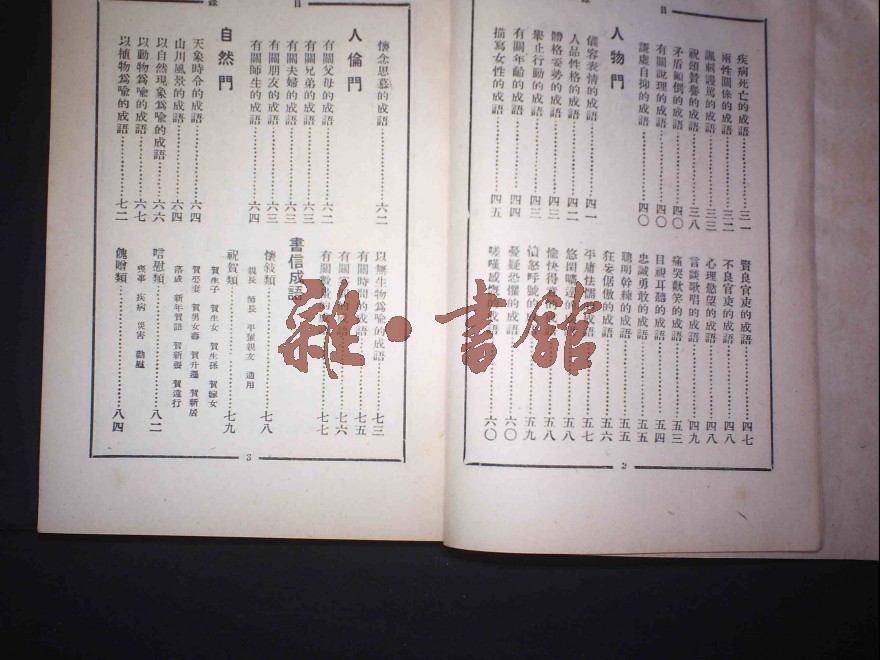 目
疾病死亡的成語………三一
兩性關係的成語………三二
諷刺譏罵的成語………三三
祝頌贊譽的成語………三八
矛盾顛倒的成語………四〇
有關說理的成語………四〇
謙虛自抑的成語………四〇
人物門
儀容表情的成語………四一
人品性格的成語………四二
體格姿勢的成語………四三
舉止行動的成語………四三
有關年齡的成語………四四
描寫女性的成語………四五
賢良官吏的成語………四七
不良官吏的成語………四八
心理慾望的成語………四八
言談歌唱的成語………四九
痛哭歡笑的成語………五三
目視耳聽的成語………五四
忠誠勇敢的成語………五五
聰明幹練的成語………五五
狂妄倨傲的成語………五六
平庸怯懦的成語………五七
悠閑曠達的成語………五八
愉快得意的成語………五八
憤怒呼號的成語………五九
憂疑恐懼的成語………六〇
嗟嘆感慨的成語………六〇
2
目
錄
懷念思慕的成語………六二
人倫門
有關父母的成語………六二
有關兄弟的成語………六三
有關夫婦的成語………六三
有關朋友的成語………六三
有關師生的成語………六四
自然門
天象時令的成語………六四
山川風景的成語………六四
以自然現象爲喩的成語………六六
以動物爲喩的成語………六七
以植物爲喩的成語………七二
以無生物爲喩的成語………七三
有關時間的成語………七五
有關 的成語………七六
有關數量的成語………七七
書信成語
懷敍類………七八
親長 師長 平輩親友 通用
祝賀類………七九
賀生子 賀生女 賀生孫 賀嫁女
賀娶妻 賀男女壽 賀升遷 賀新居
落成 新年賀語 賀新張 賀遠行
唁慰類………八二
喪事 疾病 災害 勸慰
餽贈類………八四
3
雜·書館